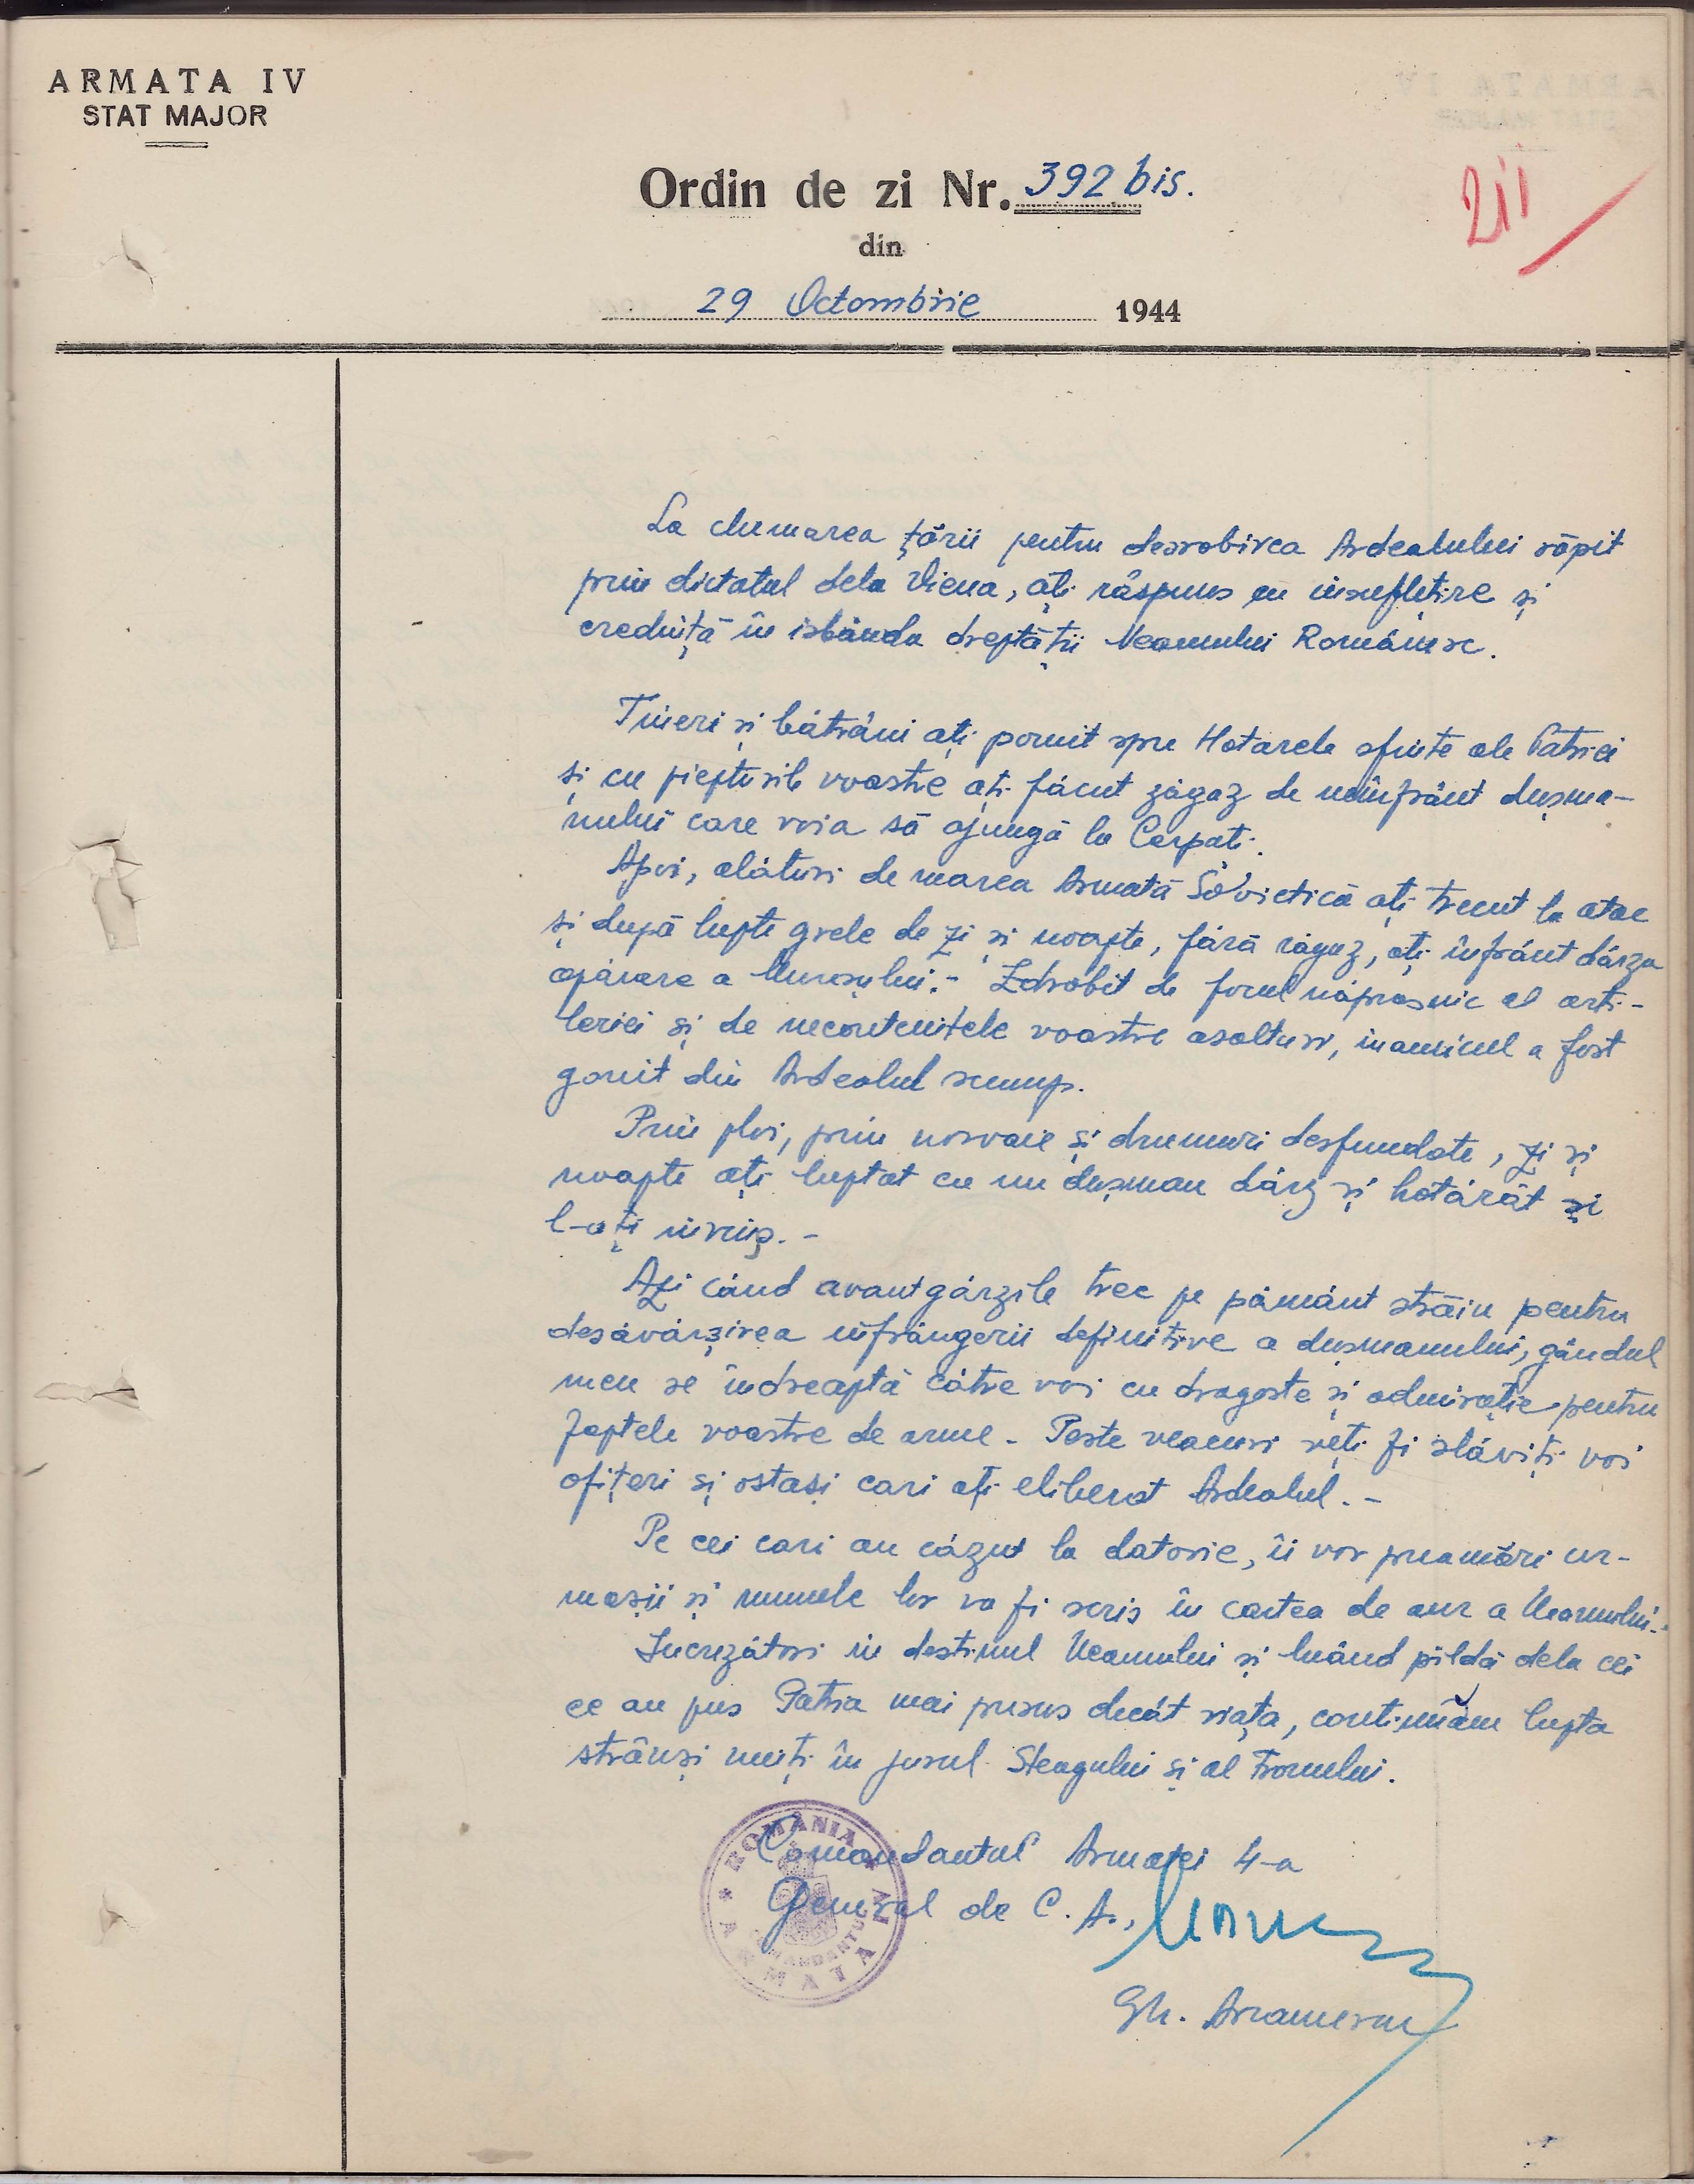 ARMATA IV
STAT MAJOR
Ordin de zi Nr. 392 bis.
211
din
29 Octombrie 1944
La chemarea țării pentru desrobirea Ardealului răpit
prin dictatul dela Viena, ați răspuns cu însuflețire și
credință în isbânda dreptății Neamului Românesc.
Tineri și bătrâni ați pornit spre Hotarele sfinte ale Patriei
și cu piepturile voastre ați făcut zăgaz de neînfrânt dușma-
nului care voia să ajungă la Carpați.
Apoi, alături de marea Armată Sovietică ați trecut la atac
și după lupte grele de zi și noapte, fără răgaz, ați înfrânt dârza
apărare a Mureșului.- Zdrobit de focul năprasnic al arti-
leriei și de necontenitele voastre asalturi, inamicul a fost
gonit din Ardealul scump.
Prin ploi, prin noroaie și drumuri desfundate, zi și
noapte ați luptat cu un dușman dârz și hotărât și
l-ați învins.-
Azi când avantgărzile trec pe pământ străin pentru
desăvârșirea înfrângerii definitive a dușmanului, gândul
meu se îndreaptă către voi cu dragoste și admirație pentru
faptele voastre de arme.- Peste veacuri veți fi slăviți voi
ofițeri și ostași cari ați eliberat Ardealul.-
Pe cei cari au căzut la datorie, îi vor preamări ur-
mașii și numele lor va fi scris în cartea de aur a Neamului.-
Încrezători in destinul Neamului și luând pildă dela cei
ce au pus Patria mai presus decât viața, continuăm lupta
strânși uniți în jurul Steagului și al Tronului.
Comandantul Armatei 4-a
General de C. A.,
Gh. Avramescu
ROMÂNIA
ARMATA IV
COMANDANTUL